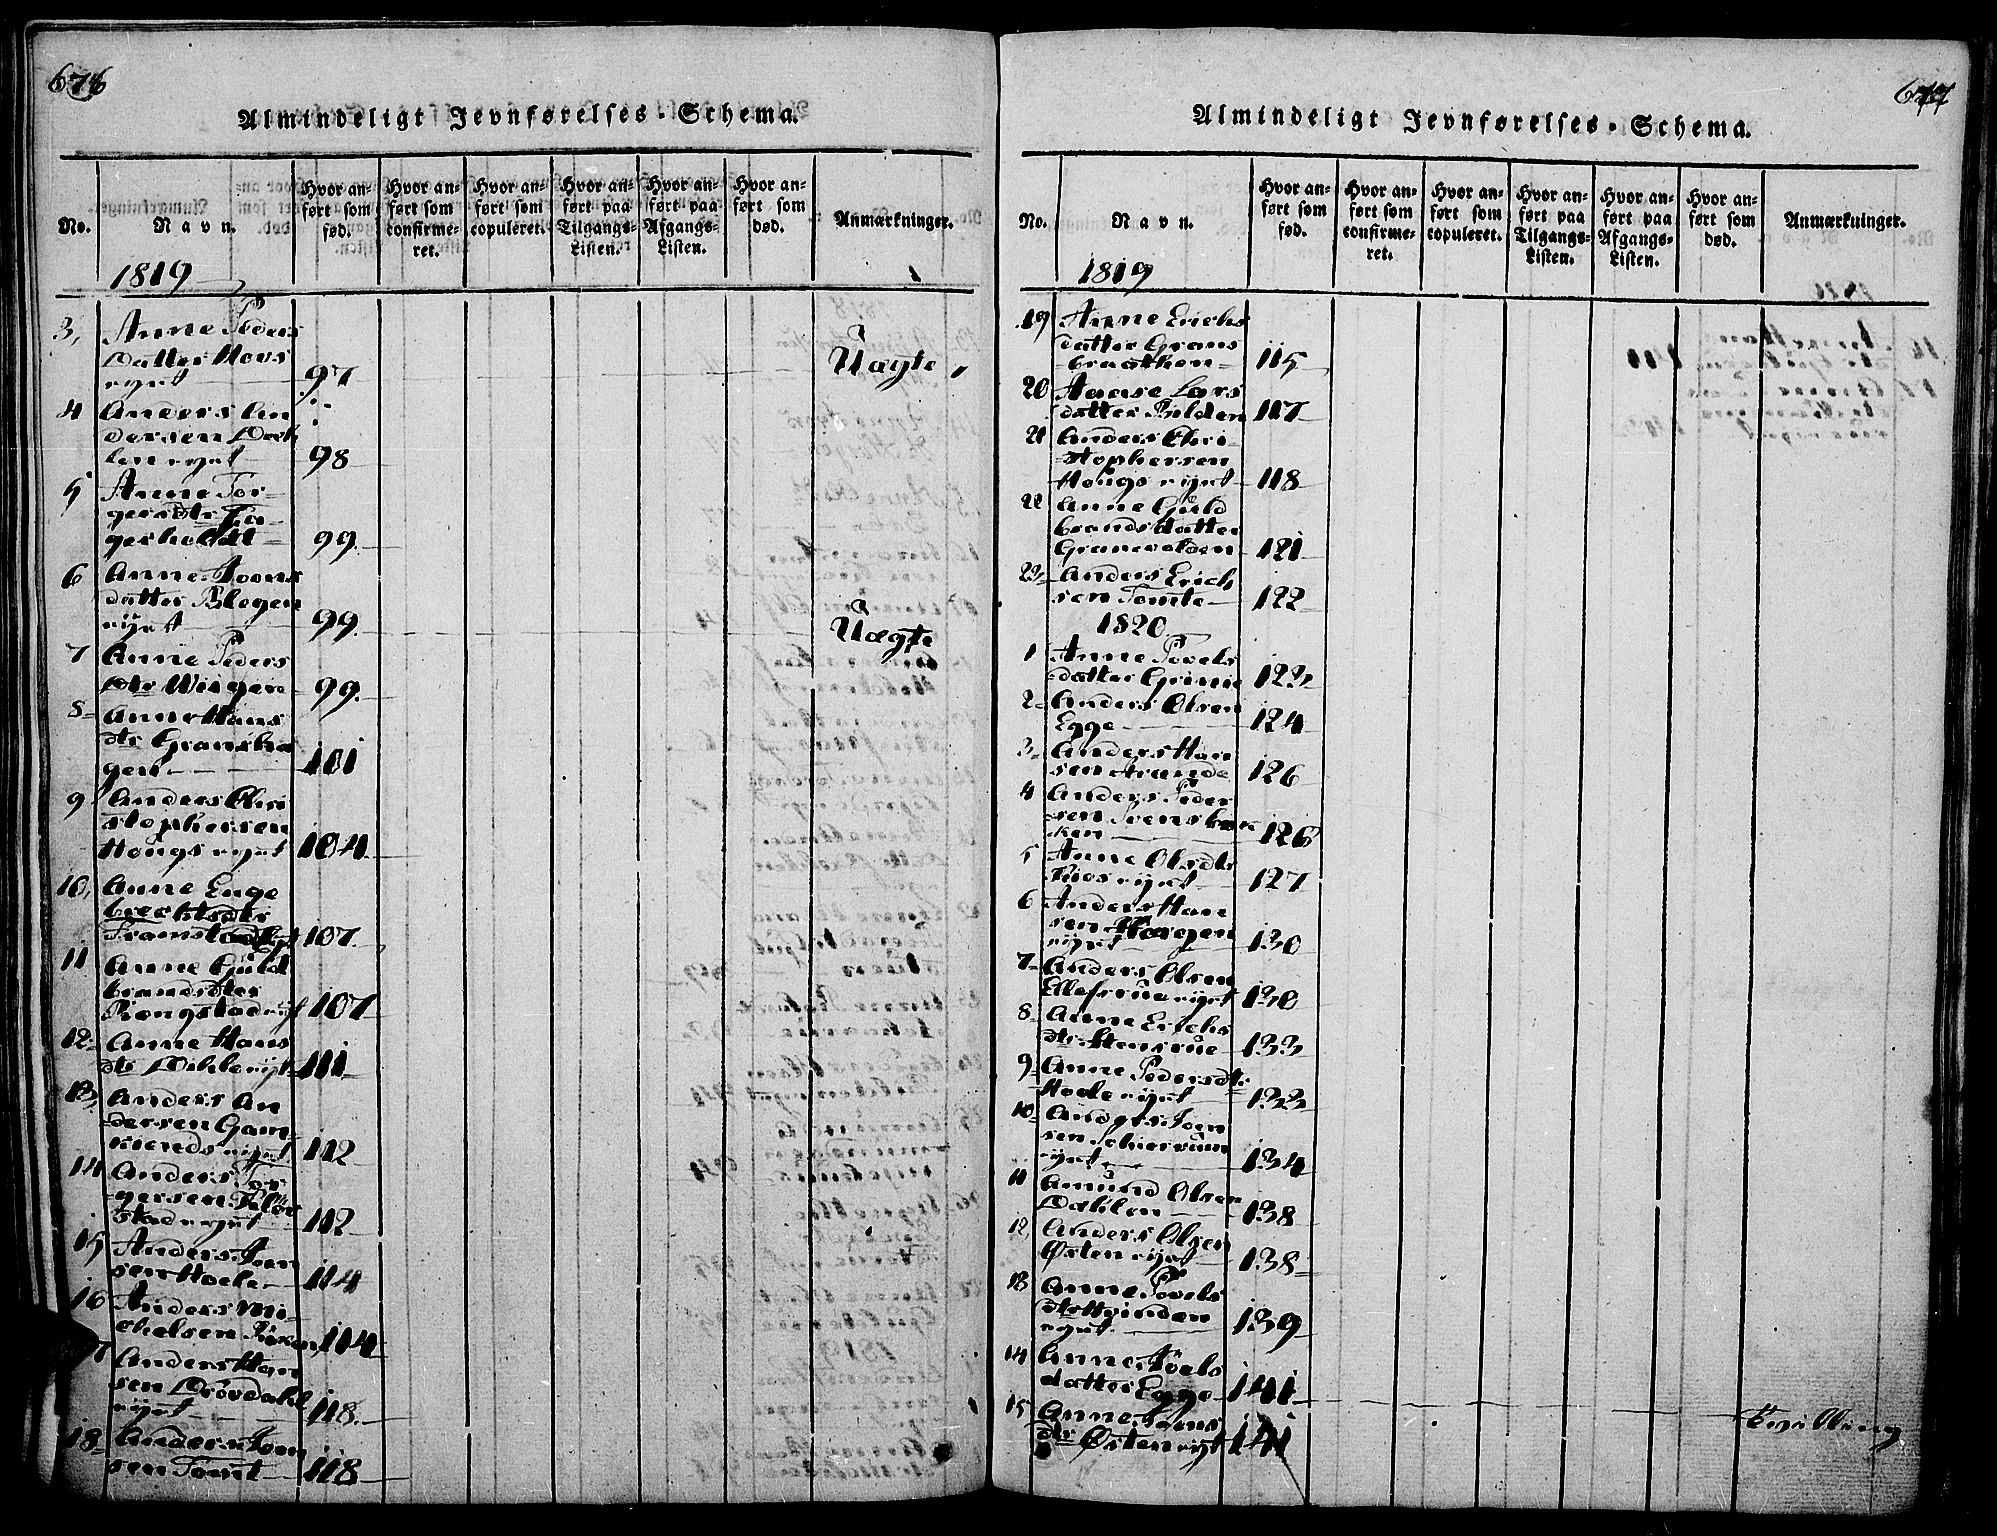 676
Almindeligt Jevnførelses-Schema.
No.
Navn.
Hvor an-
ført som
fød.
Hvor an-
ført som
confirme-
ret.
Hvor an-
ført som
copuleret.
Hvor an-
ført paa
Tilgangs-
Listen.
Hvor an-
ført paa
Afgangs-
Listen.
Hvor an-
ført som
død.
Anmærkninger.
1819
3, Anne Peders
Datter Hovs
eyet 97 Uægte
4 Anders An
dersen
eyet 98
5 Anne Tor-
gersdtr
99.
6 Anne Joens
datter
eyet 99. Uægte
7 Anne Peders
dtr Wiigen 99.
8 Anne Hans
dtr Gransha
gen 101
9 Anders Chri
stophersen
Hougs eyet 104
10, Anne Enge
brechtsdtr
107
11 Anne Guld
brandsdter
Ringstad 107
12 Anne Hans
dtr eyet 111
13, Anders An
dersen Gam-
eyet 112
14 Anders Tor
gersen
stad eyet 112
15 Anders Joen
sen Hoele 114
16 Anders Mi-
chelsen 114
7 Anders Han
sen
eyet 118.
18 Anders Joen
sen Tomt 118
677
Almindeligt Jevnførelses-Schema.
No.
Navn.
Hvor an-
ført som
fød.
Hvor an-
ført som
confirme-
ret.
Hvor an-
ført som
copuleret.
Hvor an-
ført paa
Tilgangs-
Listen.
Hvor an-
ført paa
Afgangs-
Listen.
Hvor an-
ført som
død.
Anmærkninger.
1819
19 Anne Erichs
datter Grans
braathen 115
20 Aase Lars
datter 117
21 Anders Chri-
stophersen
Hougs eyet 118
22 Anne Guld
brands datter
121
23 Anders Erich
sen Tomte 122
1820
1 Anne Povels
datter Grime 123
2 Anders Olsen
Egge 124
3 Anders Han
sen Strande 126
4 Anders Peder
sen
126
5 Anne Olsdtr
eyet 127
6 Anders Han
sen
eyet 130
7 Anders Olsen
eyet 130
8 Anne Erichs
dtr Stensrue 133
9 Anne Pedersdtr
Hoele eyet 133
10 Anders Joen
sen
eyet 134
11 Amund Olsen
Dahlen 138
12, Anders Olsen
Østen eyet 138
13 Anne Povels
dtr
eyet 139
14 Anne Povels
datter Egge 141
15 Anne Joens
dtr Østen eyet 141 Tvilling